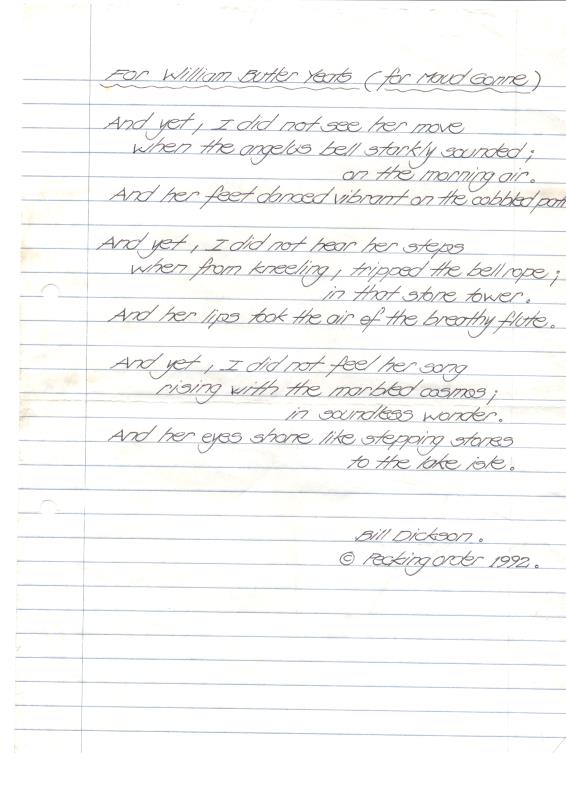 For William Butler Yeats (for Maud Gonne)
And yet, I did not see her move
when the angelus bell starkly sounded;
on the morning air.
And her feet danced vibrant on the cobbled path
And yet, I did not hear her steps
when from kneeling, tripped the bellrope;
in that stone tower.
And her lips took the air of the breathy flute.
And yet, I did not feel her song
rising with the marbled cosmos;
in soundless wonder.
And her eyes shone like stepping stones
to the lake isle.
Bill Dickson.
© Pecking order 1992.